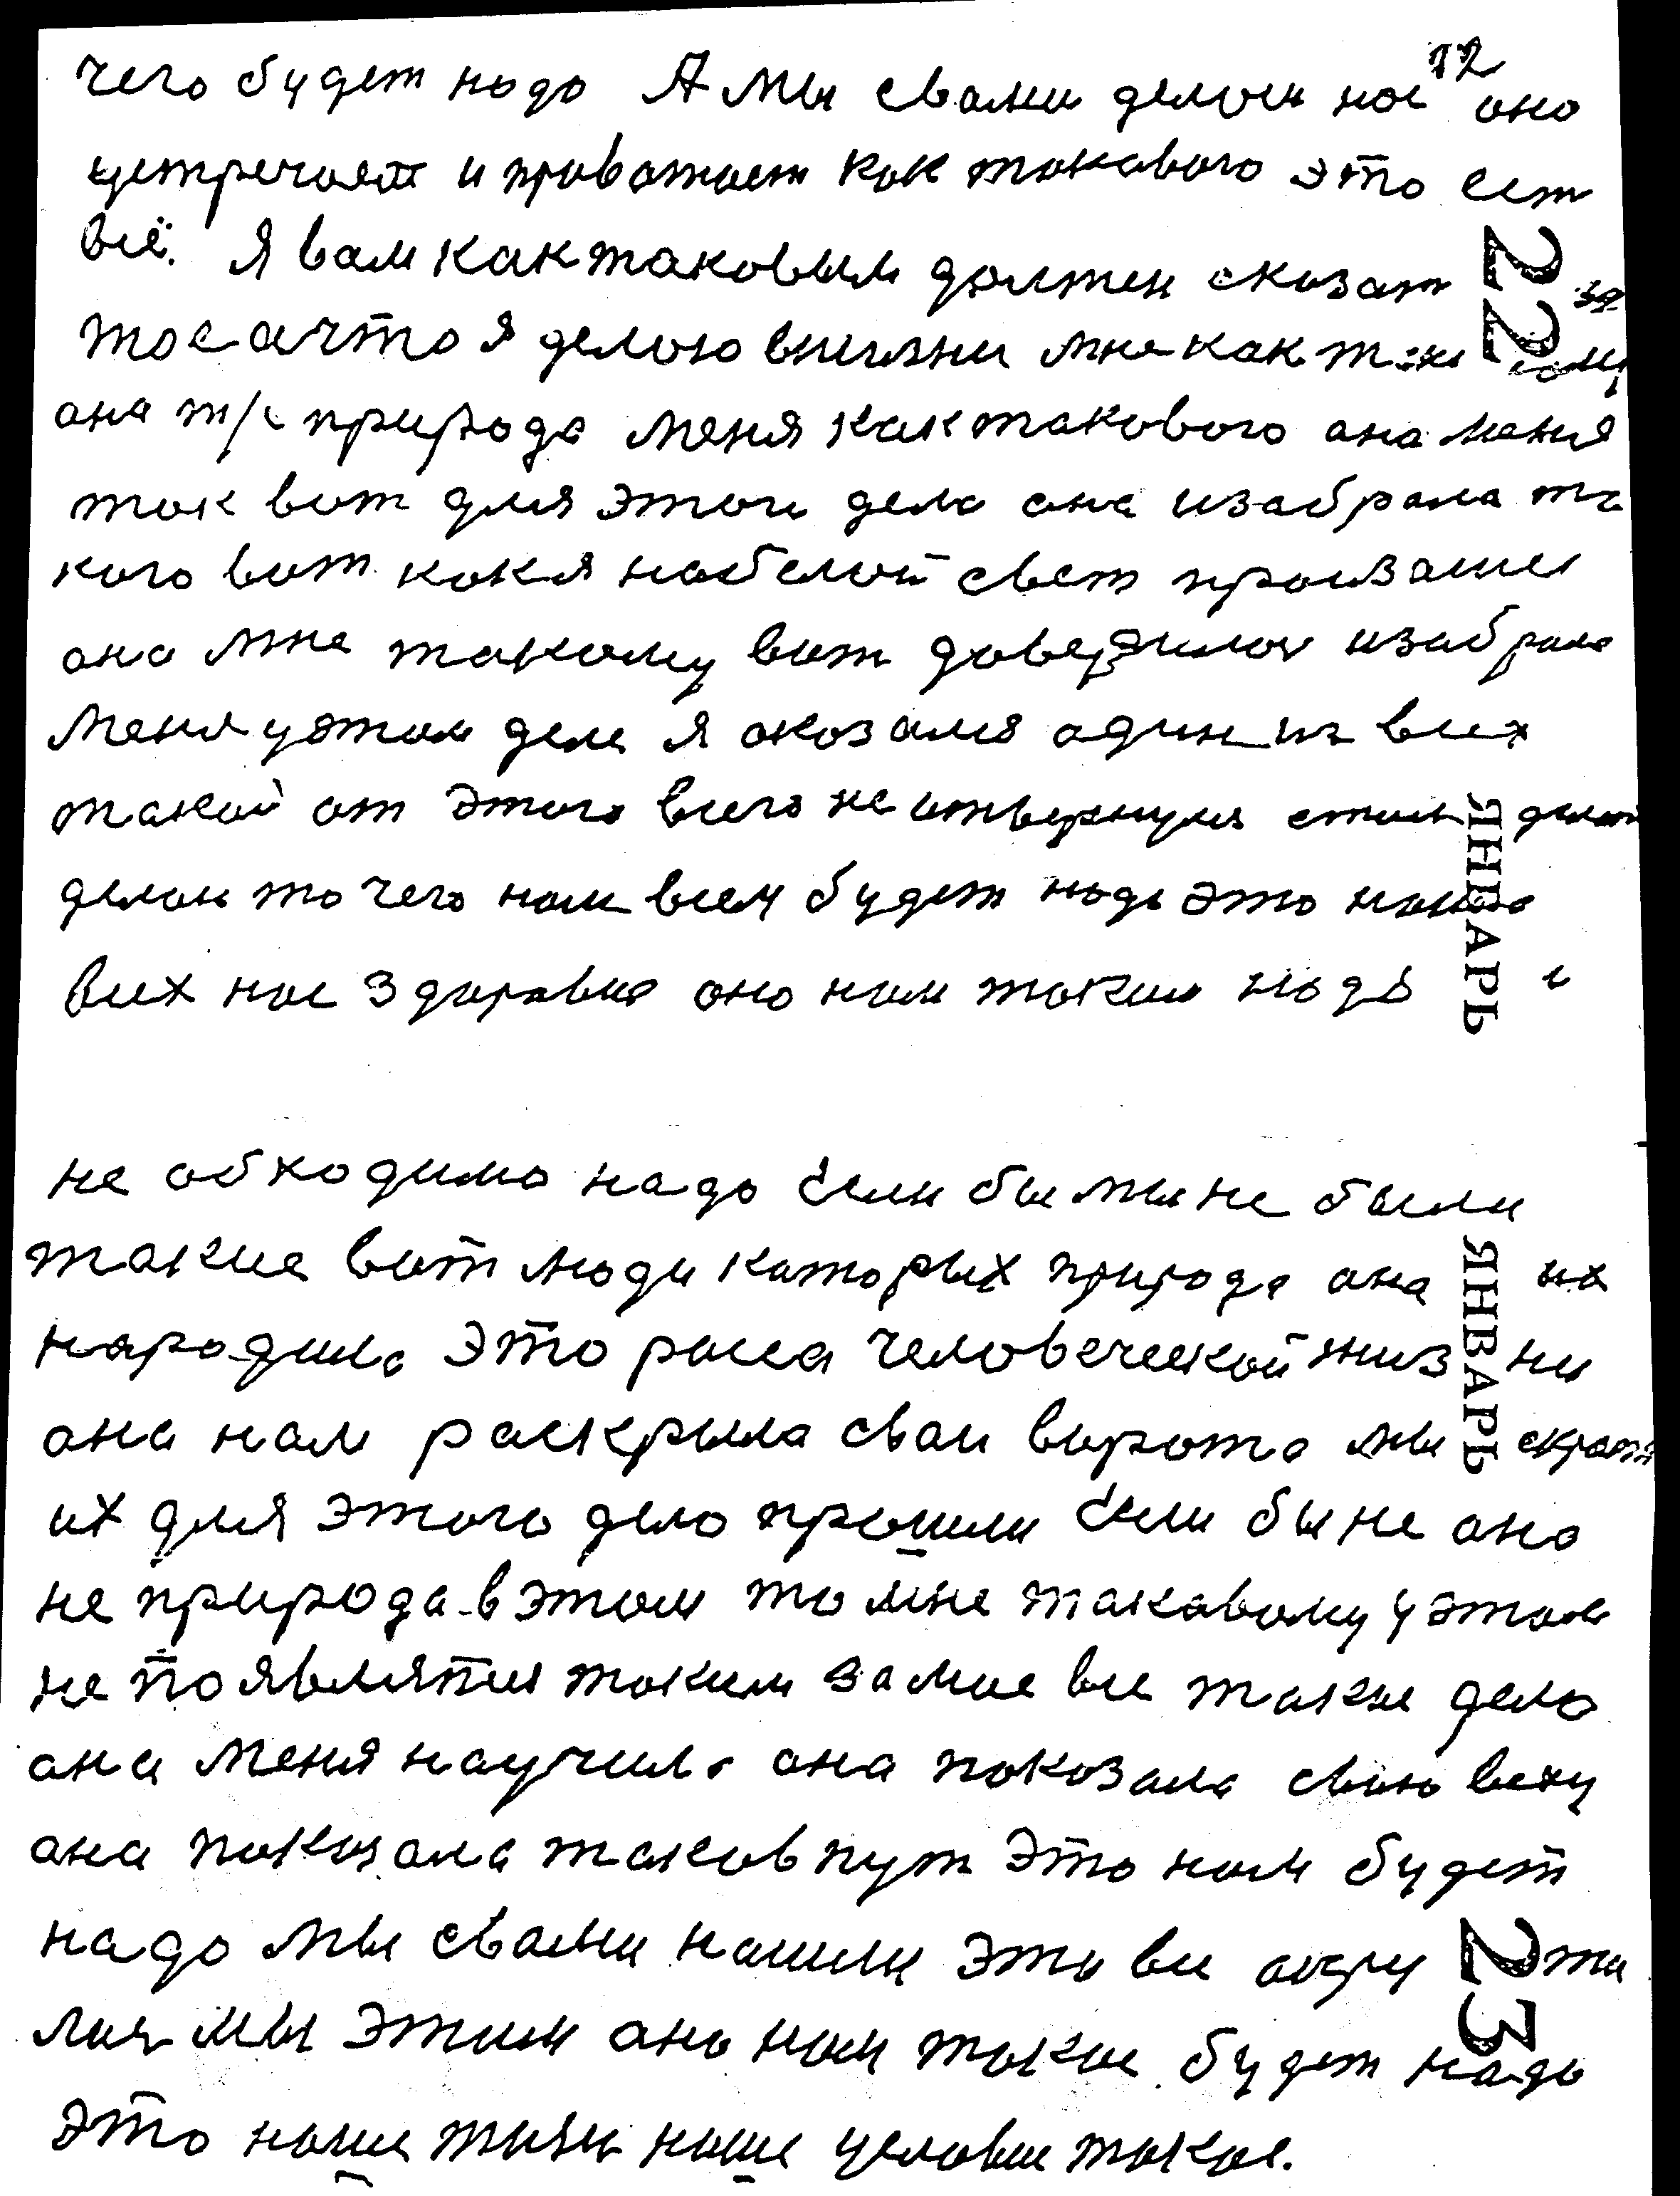 12
чего будет надо А мы свами делаем нас оно
устречает и проважает как такового это ест
всё. Я вам как таковым должен сказат за
тое ачто я делаю вжизни мне как
она т/е природа меня как такового она меня
так вот для этого дела она изабрала та
кого вот как я набелый свет произашел
она мне такому вот доверилас изабрала
меня уэтом деле я оказался адин из всех
такой от этого всего не отвернулся делат
делаю то чего нам всем будет надо это наше
всех нас здаровие оно нам таким надо и
22
ЯНВАРЬ
не обходимо надо Если бы мы не были
такие вот люди каторых природа она их
народила это расса человеческой жизни
она нам раскрыла сваи ворота мы скрозь
их для этого дело прошли Если бы не она
не природа в этом то мне такавому уэтом
не появлятся таким за мое все такое дело
она меня научила она показала свою веху
она показала таков пут это нам будет
надо мы свами нашли это все
мы этим оно нам такое будет надо
это наше жизн наше условие такое.
ЯНВАРЬ
23